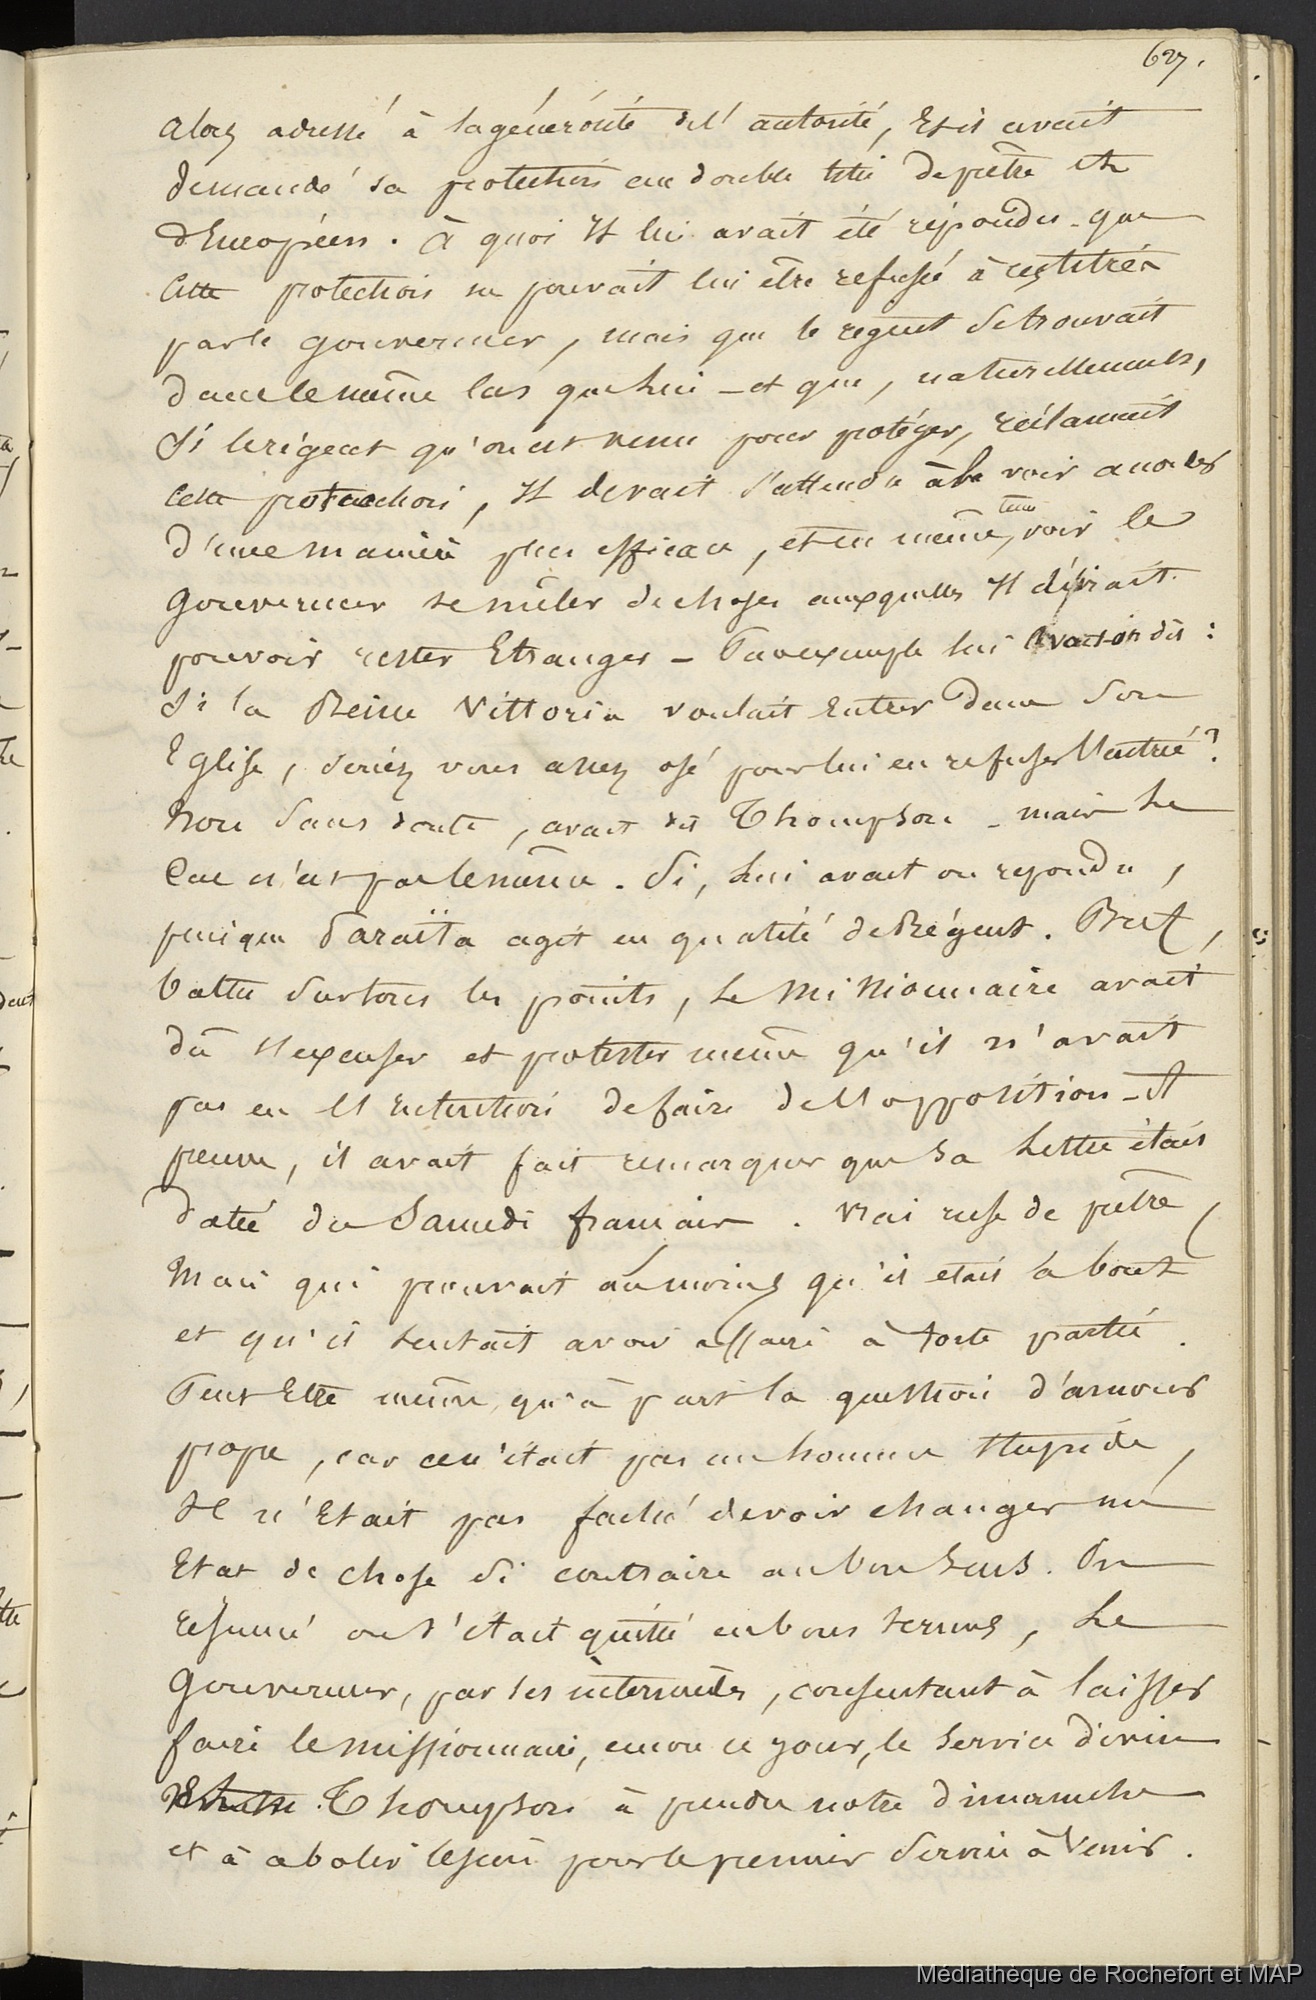 627.
alors adressé à la générosité de l'autorité, Et il avait
demandé sa protection au double titre de prêtre et
d'Européen. À quoi Il lui avait été répondu que
cette protection ne pouvait lui être refusée à ces titres
par le gouverneur, mais que le régent se trouvait
dans le même cas que lui _ et que, naturellement,
Si le régent qu'on est venu pour protéger, réclamait
cette protection, Il devait s'attendre à la voir accorder
d'une manière plus efficace, et en même tems, voir le
Gouverneur se mêler de choses auxquelles Il désirait
pouvoir rester Etranger _ Par exemple lui avait-on dit :
Si la Reine Vittoria voulait Entrer dans Son
Eglise, seriez vous assez osé pour lui en refuser l'entrée ?
Non Sans doute, avait dit Thompson _ mais le
Cas n'est pas le même. Si, lui avait on repondu,
puisque Paraïta agit en qualité de Régent. Bref,
battu Sur tous les points, le Missionnaire avait
dû s'excuser et protester même qu'il n'avait
pas eu l'intention de faire de l'opposition _ et
preuve, il avait fait remarquer que sa lettre était
datée du Samedi français. Vrai ruse de prêtre
Mais qui prouvait au moins qu'il etait à bout
et qu'il sentait avoir affaire à forte partie.
Peut Etre même, qu'à part la question d'amour
propre, car ce n'était pas un homme stupide,
Il n'Etait pas faché de voir changer un
Etat de chose Si contraire au bon Sens. En
résumé on s'était quitté en bons termes, le
Gouverneur, par ses internèdes, consentant à laisser
faire le missionnaire, encore ce jour, le Service divin
Thompson à prendre notre dimanche
et à abolir le sien pour le premier Service à Venir.
Médiathèque de Rochefort et MAP